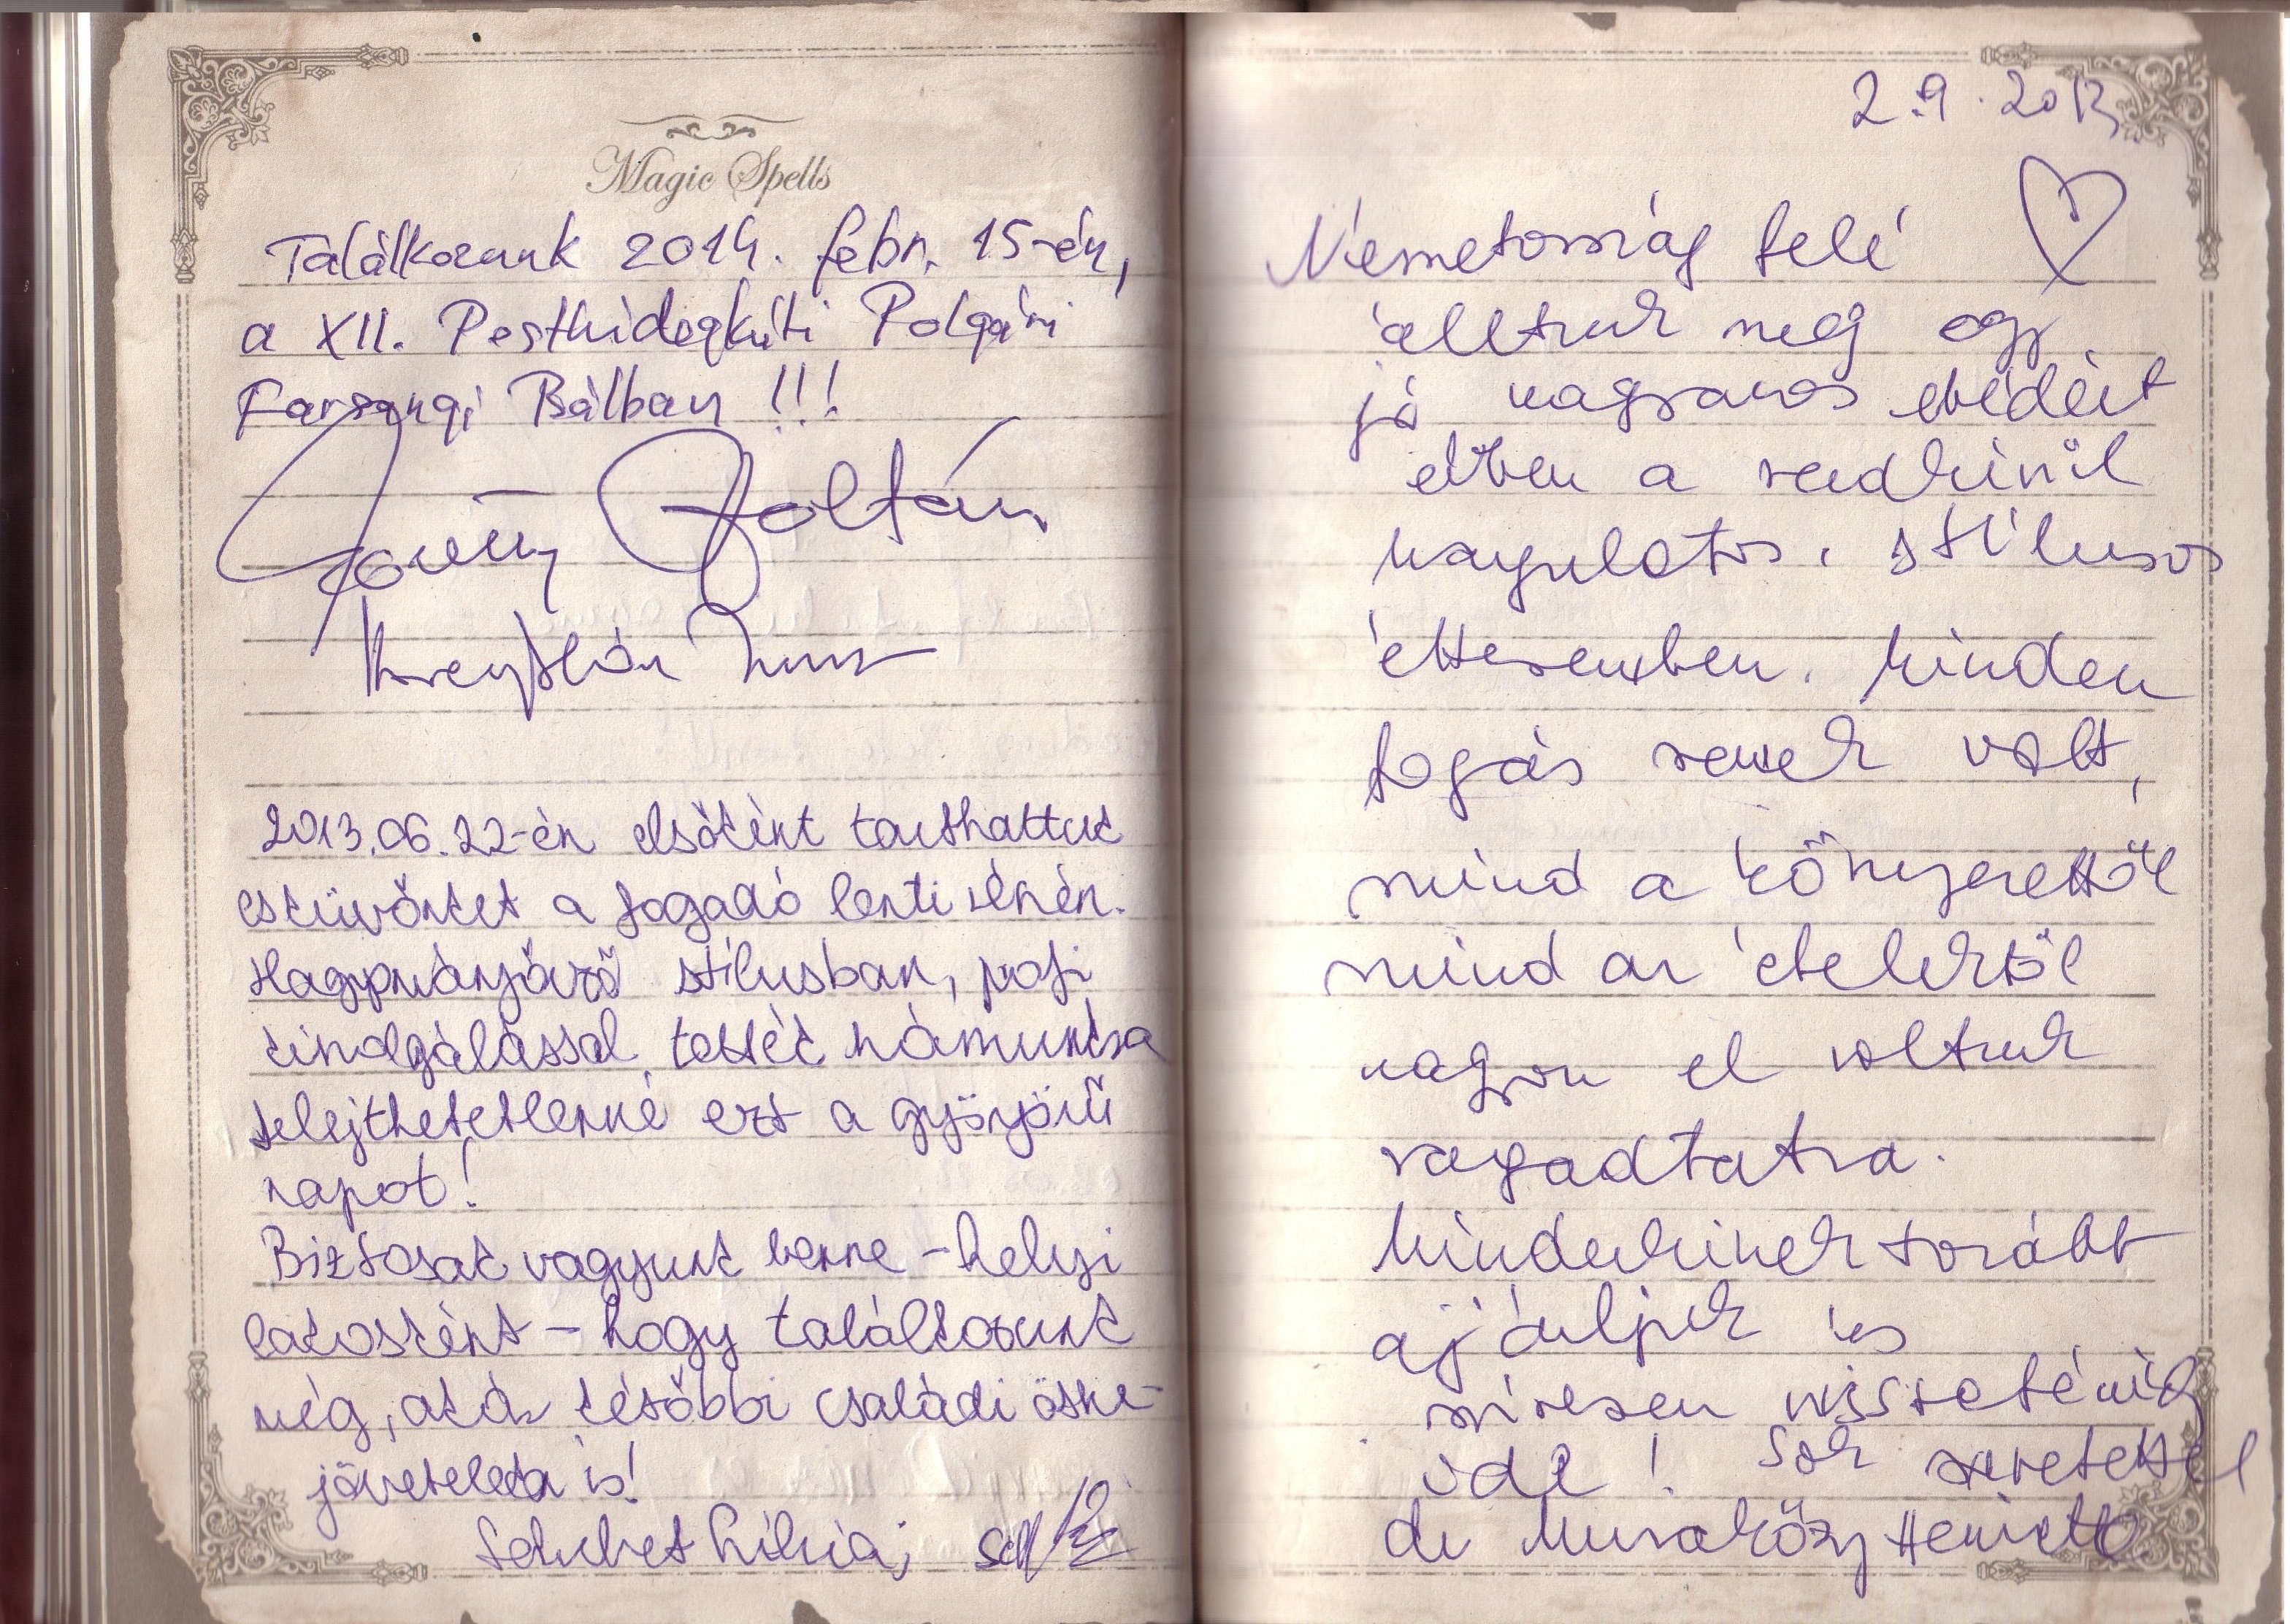 Magic Spells
Találkozunk 2014. febr. 15-én,
a XII. Pesthidegkúti Polgári
Farsangi Bálban!!!
Zoltán
2013.06.22-én elsőként tarthattuk
esküvőnket a fogadó kerti részén.
Hagyományőrző stílusban, profi
kiszolgálással, tették számunkra
felejthetetlenné ezt a gyönyörű
napot!
Biztosak vagyunk benne - helyi
lakosként - hogy találkozunk
még, akár későbbi családi össze-
jövetelen is!
2.9.2013
Németország felé
álltunk meg egy
jó vagyanos ebédért
ebben a rendkívül
hangulatos, stílusos
étteremben. Minden
fogás remek volt,
mind a környezettől
mind az ételektől
nagyon el voltunk
ragadtatva.
Mindenkinek tovább
ajánljuk és
szívesen visszatérünk
ide! Sok szeretettel
dr Muraközy Henriette